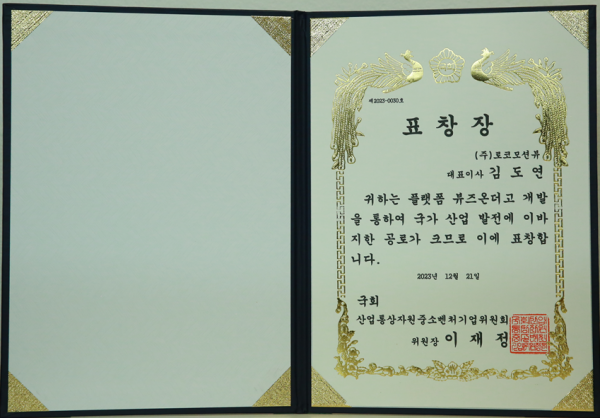 제2023-0030호
표 창 장
(주)로코모션뷰
대표이사 김 도 연
귀하는 플랫폼 뷰즈온더고 개발
을 통하여 국가 산업 발전에 이바
지한 공로가 크므로 이에 표창합
니다.
2023년 12월 21일
국회
산업통상자원중소벤처기업위원회
위원장 이 재 정